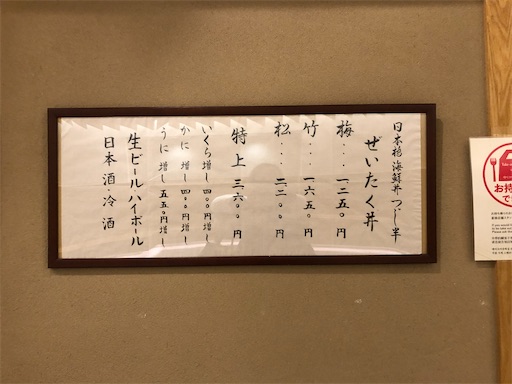 日本橋海鮮丼つじ半
ぜいたく丼
梅・・・一二五〇円
竹・・・一六五〇円
松・・・二二〇〇円
特上 三六〇〇円
いくら増し 四〇〇円増し
かに増し 四〇〇円増し
うに増し 五五〇円増し
生ビール ハイボール
日本酒・冷酒
お持